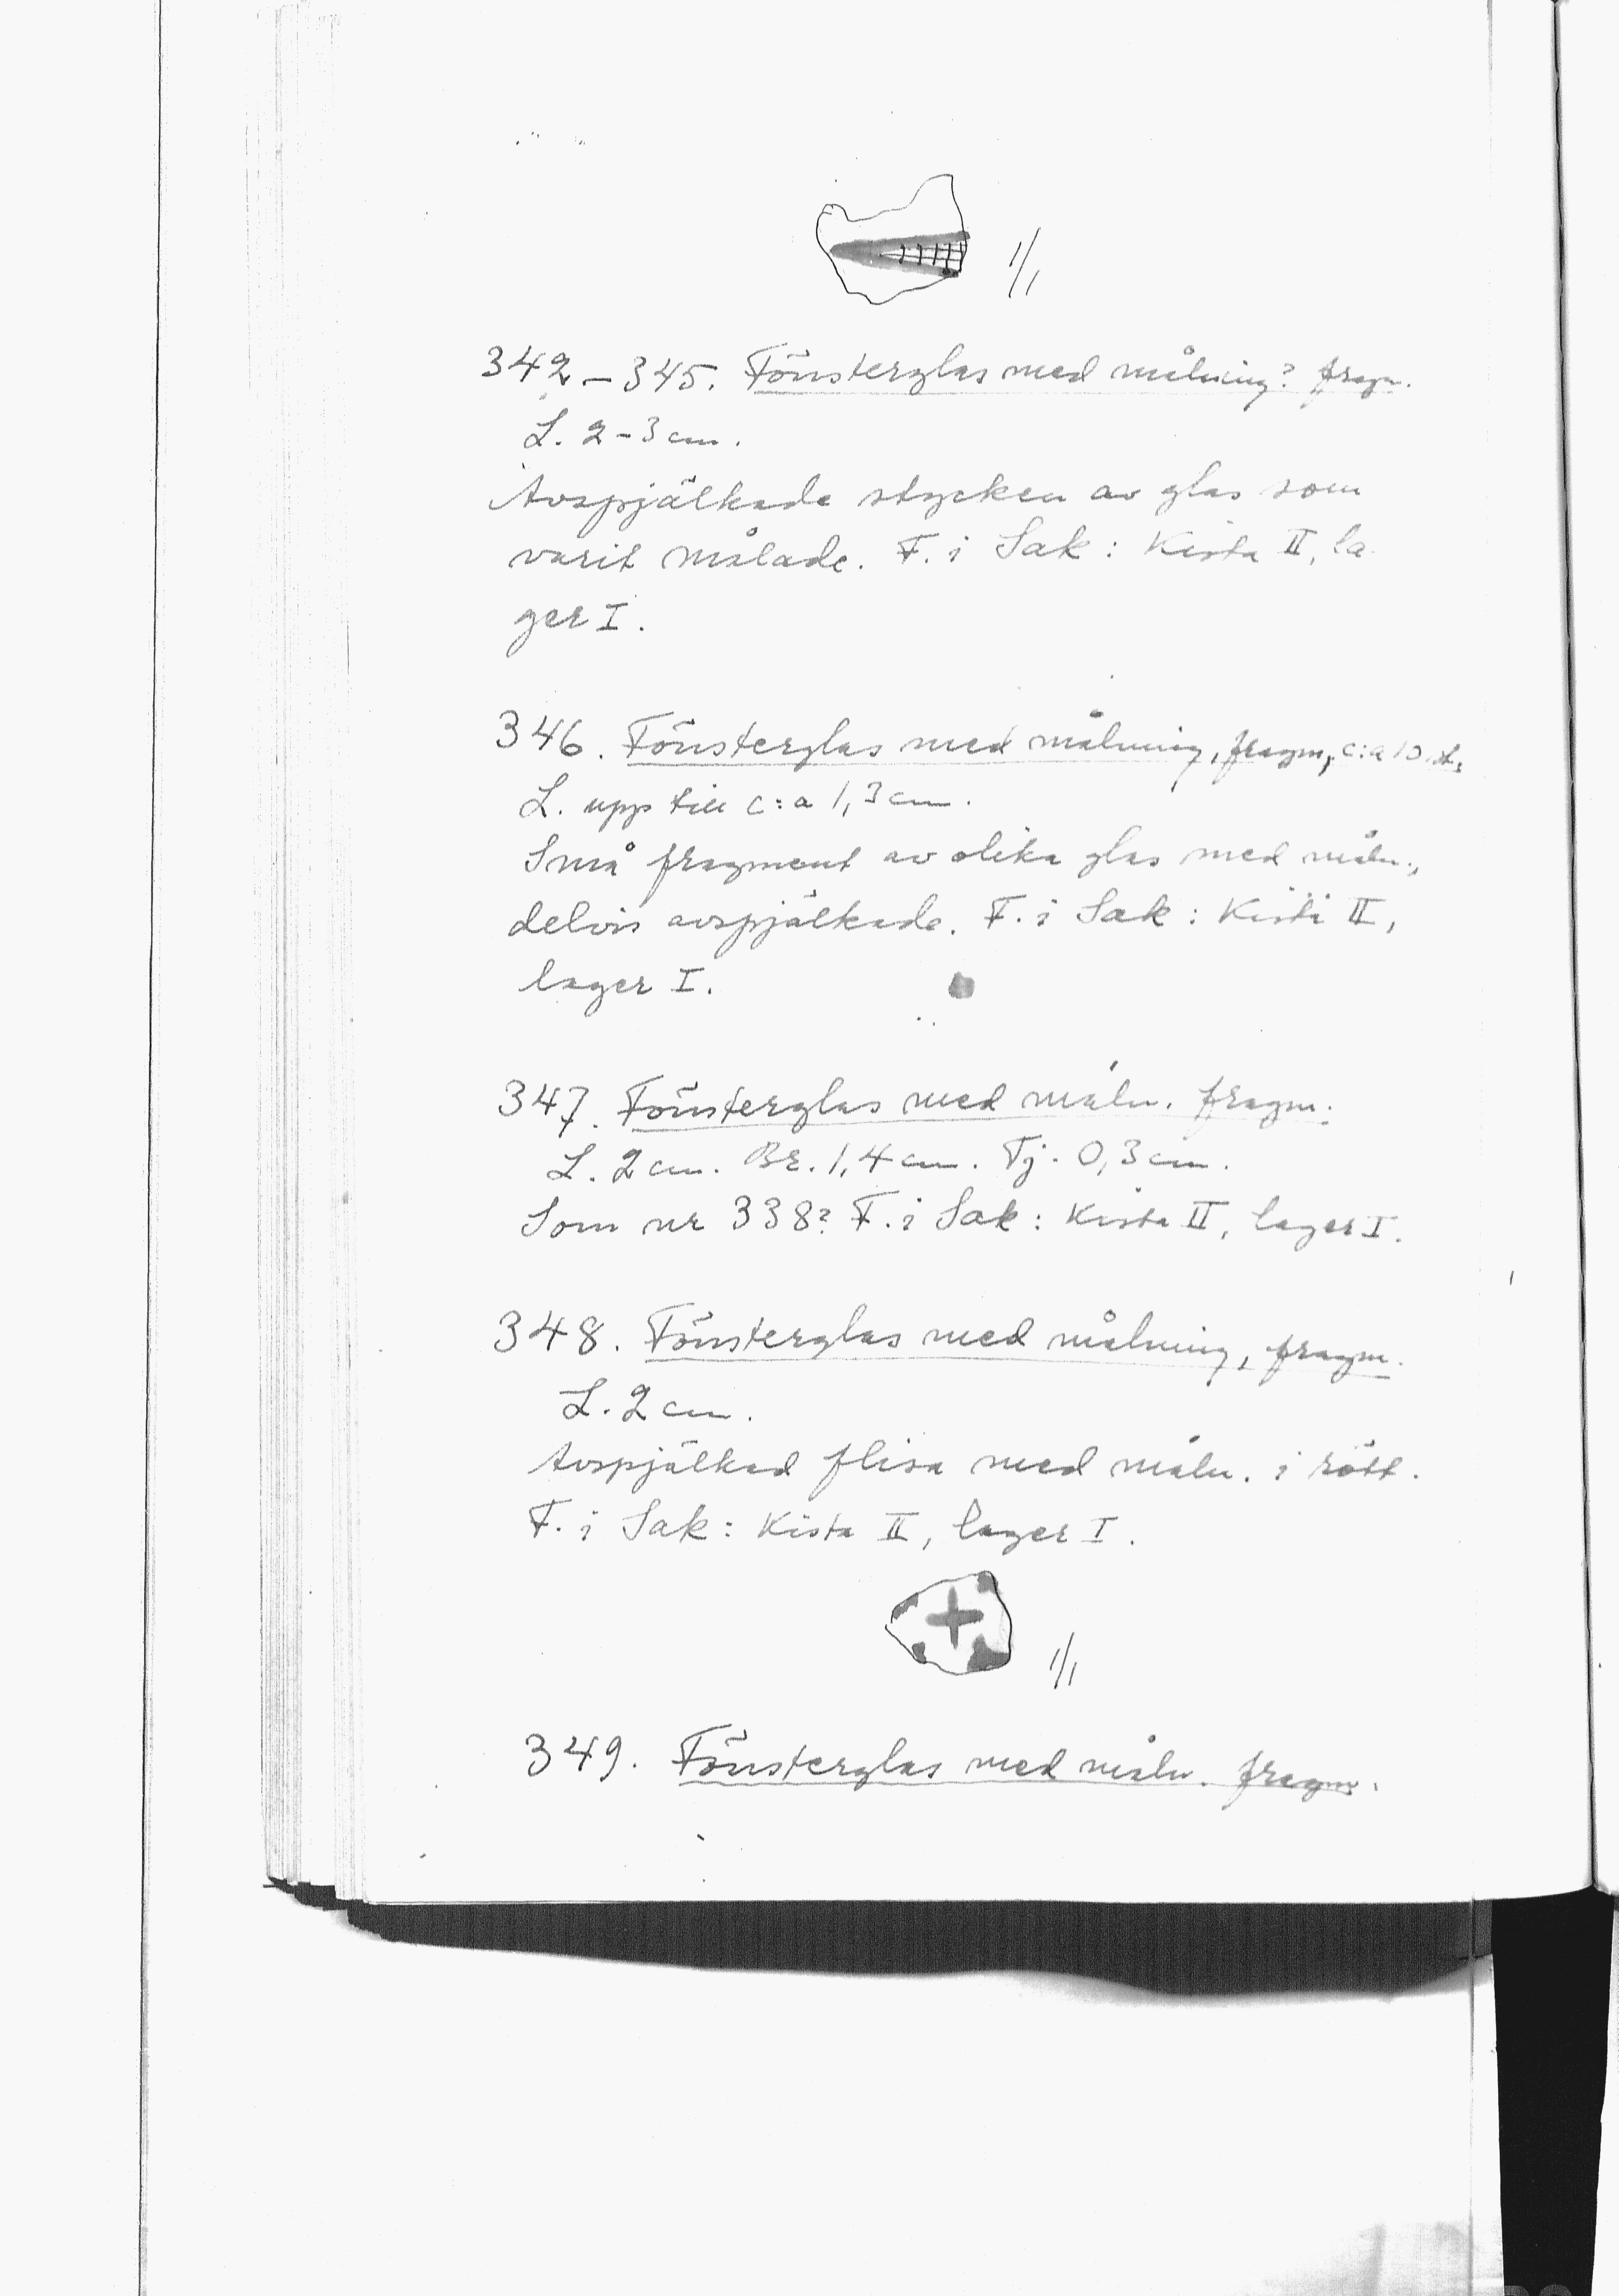 1/1
342-345. Fönsterglas med målning? fragm.
L. 2-3 cm.
Avspjälkade stycken av glas som
varit målade. F. i Sak: Kista II, la
ger I.
346. Fönsterglas med målning, fragm, c:a 10 st.
L. upp till c:a 1,3 cm.
Små fragment av olika glas med måln.,
delvis avspjälkade. F. i Sak: Kista II,
lager I.
347. Fönsterglas med måln. fragm.
L. 2 cm. Br. 1,4 cm. Tj. 0,3 cm.
Som nr 338? F. i Sak: Kista II, lager I.
348. Fönsterglas med målning, fragm.
L. 2 cm.
Avspjälkad flisa med måln. i rött.
F. i Sak: Kista II, lager I.
1/1
349. Fönsterglas med måln. fragm.